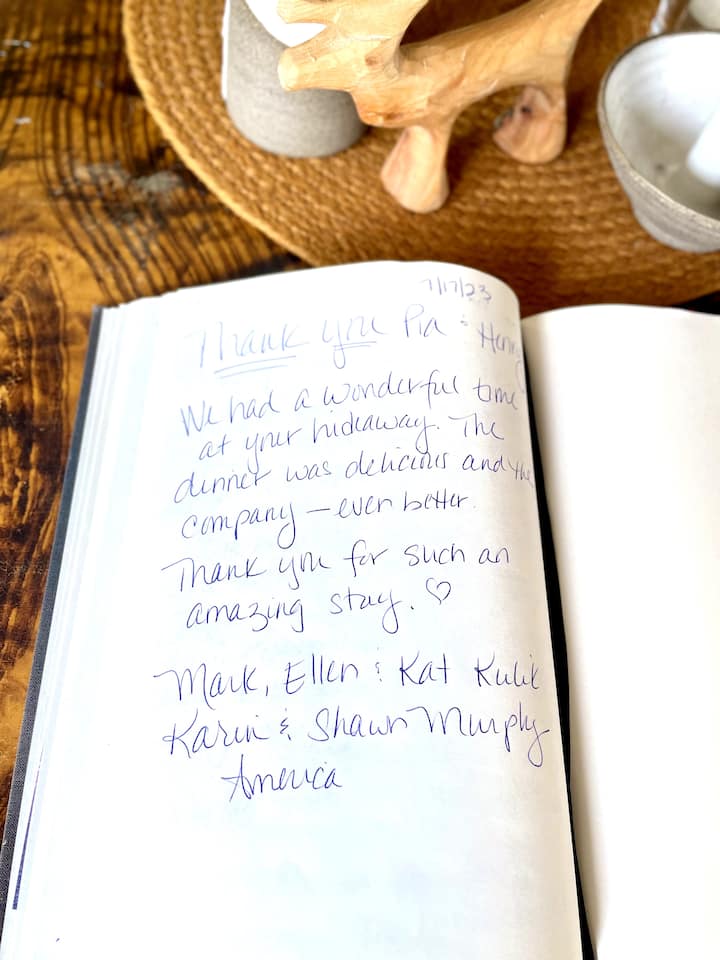 7/17/23
Thank you Pia & Henry
We had a wonderful time
at your hideaway. The
dinner was delicious and the
company – even better.
Thank you for such an
amazing stay. ♡
Mark, Ellen & Kat Kulik
Karin & Shawn Murphy
America